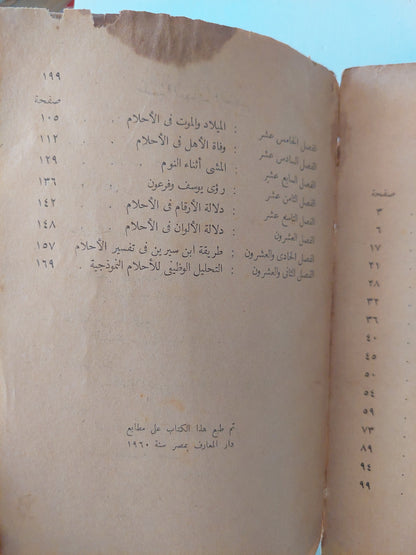 ١٩٩
صفحة
الفصل الخامس عشر : الميلاد والموت فى الأحلام . . ١٠٥
الفصل السادس عشر : وفاة الأهل فى الأحلام . . . ١١٢
الفصل السابع عشر : المشى أثناء النوم . . . ١٢٩
الفصل الثامن عشر : رؤى يوسف وفرعون . . ١٣٦
الفصل التاسع عشر : دلالة الأرقام فى الأحلام . . ١٤٢
الفصل العشرون : دلالة الألوان فى الأحلام . . ١٤٨
الفصل الحادى والعشرون : طريقة ابن سيرين فى تفسير الأحلام ١٥٧
الفصل الثانى والعشرون : التحليل الوظيفى للأحلام النموذجية . ١٦٩
تم طبع هذا الكتاب على مطابع
دار المعارف بمصر سنة ١٩٦٠
صفحة
٣
٦
١٧
٢١
٢٨
٣٢
٣٦
٤٠
٤٥
٥٠
٥٤
٥٩
٧٣
٨٩
٩٤
٩٩